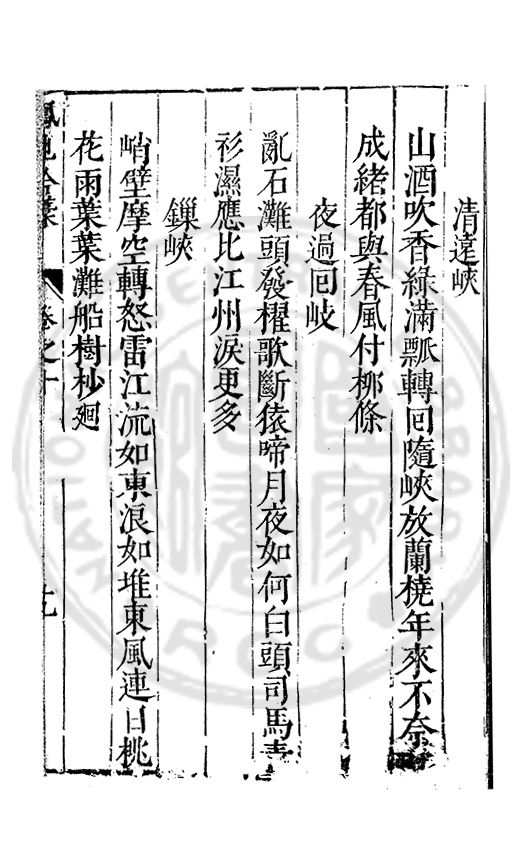 清遠峽
山酒吹香綠滿瓢轉囘隨峽放蘭橈年來不奈
成緒都與春風付栁條
夜過囘岐
亂石灘頭發櫂歌斷猿啼月夜如何白頭司馬青
衫濕應比江州淚更多
鏁峽
峭壁摩空轉怒雷江流如東浪如堆東風連日桃
花雨葉葉灘船樹杪廻
卷之十